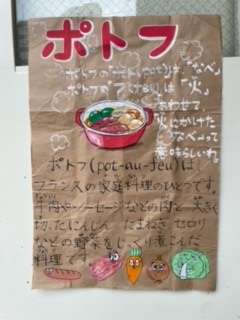 ポトフ
ポトフの「ポ(pot)」は、「なべ」
ポトフの「フ(feu)」は「火」
あわせて
「火にかけた
なべ」って
意味らしいわ。
ポトフ(pot-au-feu)は
フランスの家庭料理のひとつです。
牛肉やソーセージなどの肉と、大きく
切ったにんじん、たまねぎ、セロリ
などの野菜をじっくり煮こんだ
料理です。